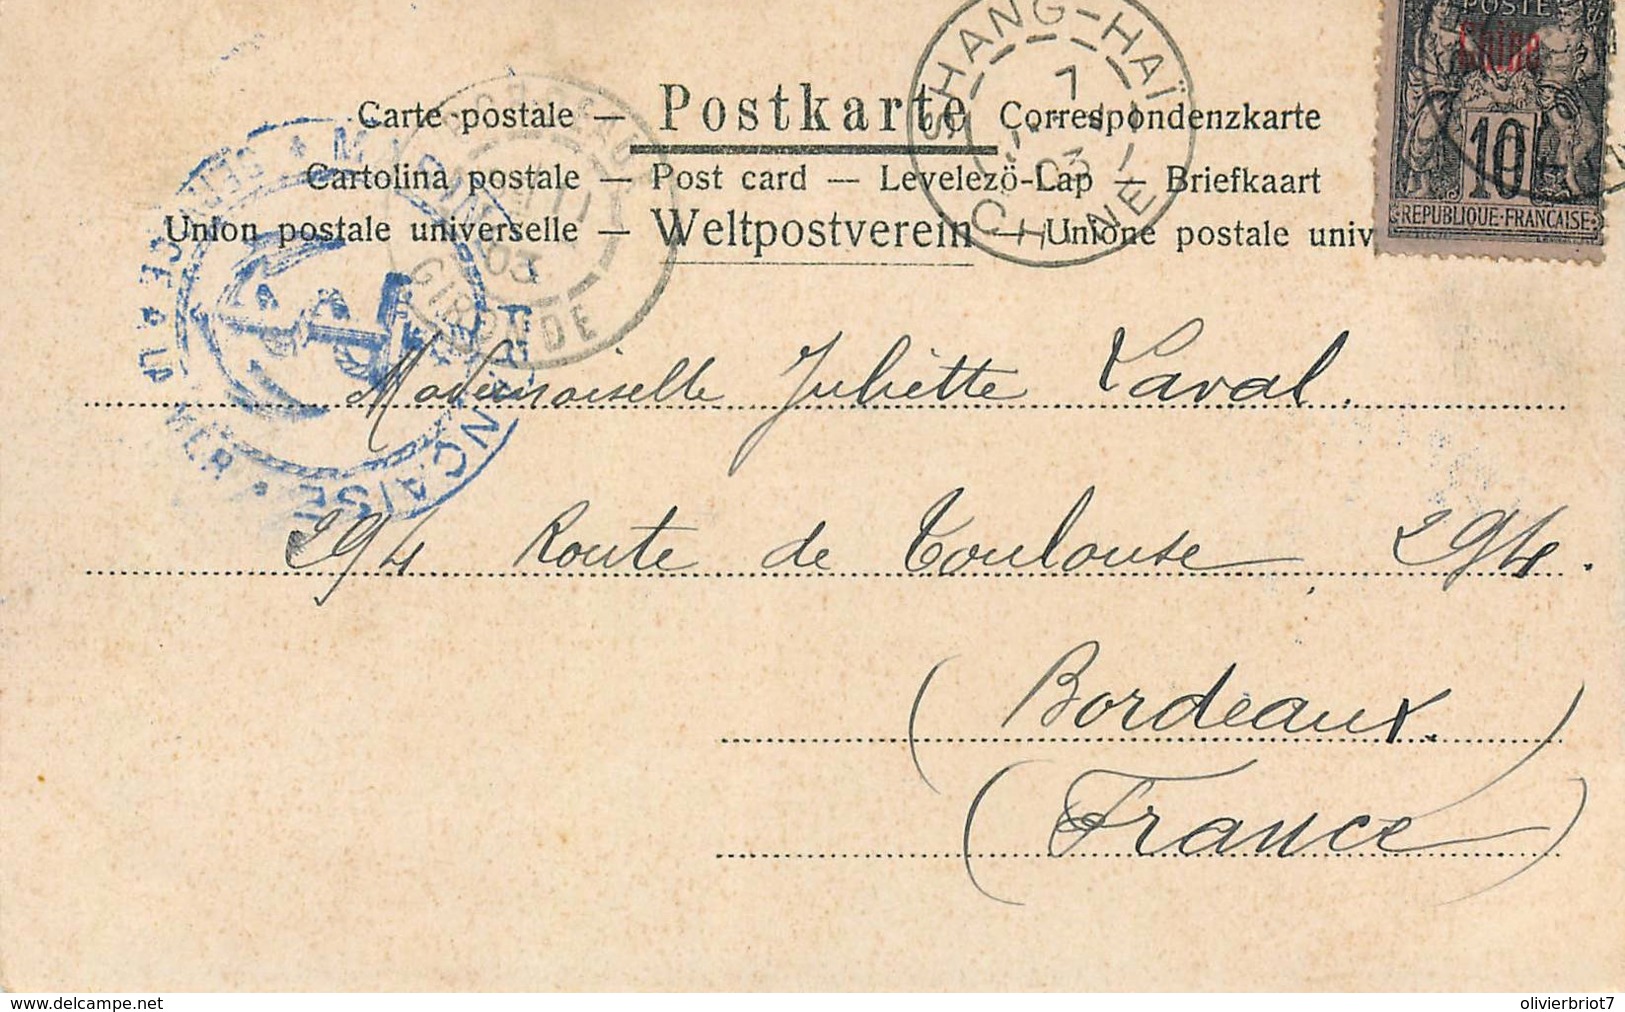 POSTE
Chine
10
REPUBLIQUE-FRANCAISE
SHANG-HAÏ
7
03
CHINE
Carte postale — Postkarte Correspondenzkarte
Cartolina postale — Post card — Levelezö-Lap — Briefkaart
Union postale universelle — Weltpostverein — Unione postale univ
BORDEAUX
03
GIRONDE
MARINE FRANÇAISE
SERVICE À LA MER
Mademoiselle Juliette Laval.
294 Route de Toulouse, 294.
(Bordeaux.)
(France)
www.delcampe.net
olivierbriot7